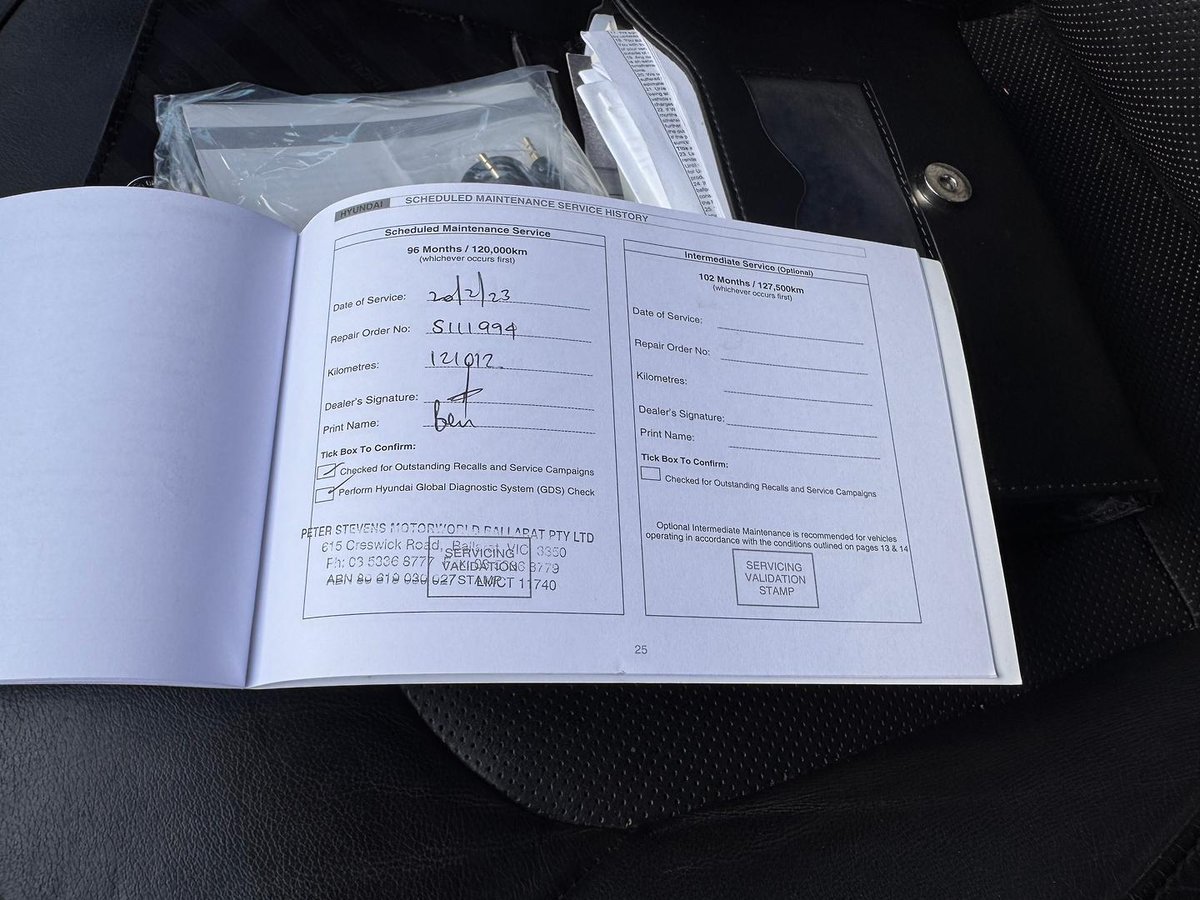 HYUNDAI SCHEDULED MAINTENANCE SERVICE HISTORY
Scheduled Maintenance Service
96 Months / 120,000km
(whichever occurs first)
Date of Service: 20/2/23
Repair Order No: S111994
Kilometres: 121012
Dealer's Signature:
Print Name: Ben
Tick Box To Confirm:
Checked for Outstanding Recalls and Service Campaigns
Perform Hyundai Global Diagnostic System (GDS) Check
PETER STEVENS MOTORWORLD BALLARAT PTY LTD
615 Creswick Road, Ballarat VIC 3350
Ph: 03 5336 8777
ABN 89 619 030 627 LMCT 11740
SERVICING
VALIDATION
STAMP
Intermediate Service (Optional)
102 Months / 127,500km
(whichever occurs first)
Date of Service:
Repair Order No:
Kilometres:
Dealer's Signature:
Print Name:
Tick Box To Confirm:
Checked for Outstanding Recalls and Service Campaigns
Optional Intermediate Maintenance is recommended for vehicles
operating in accordance with the conditions outlined on pages 13 & 14
SERVICING
VALIDATION
STAMP
25